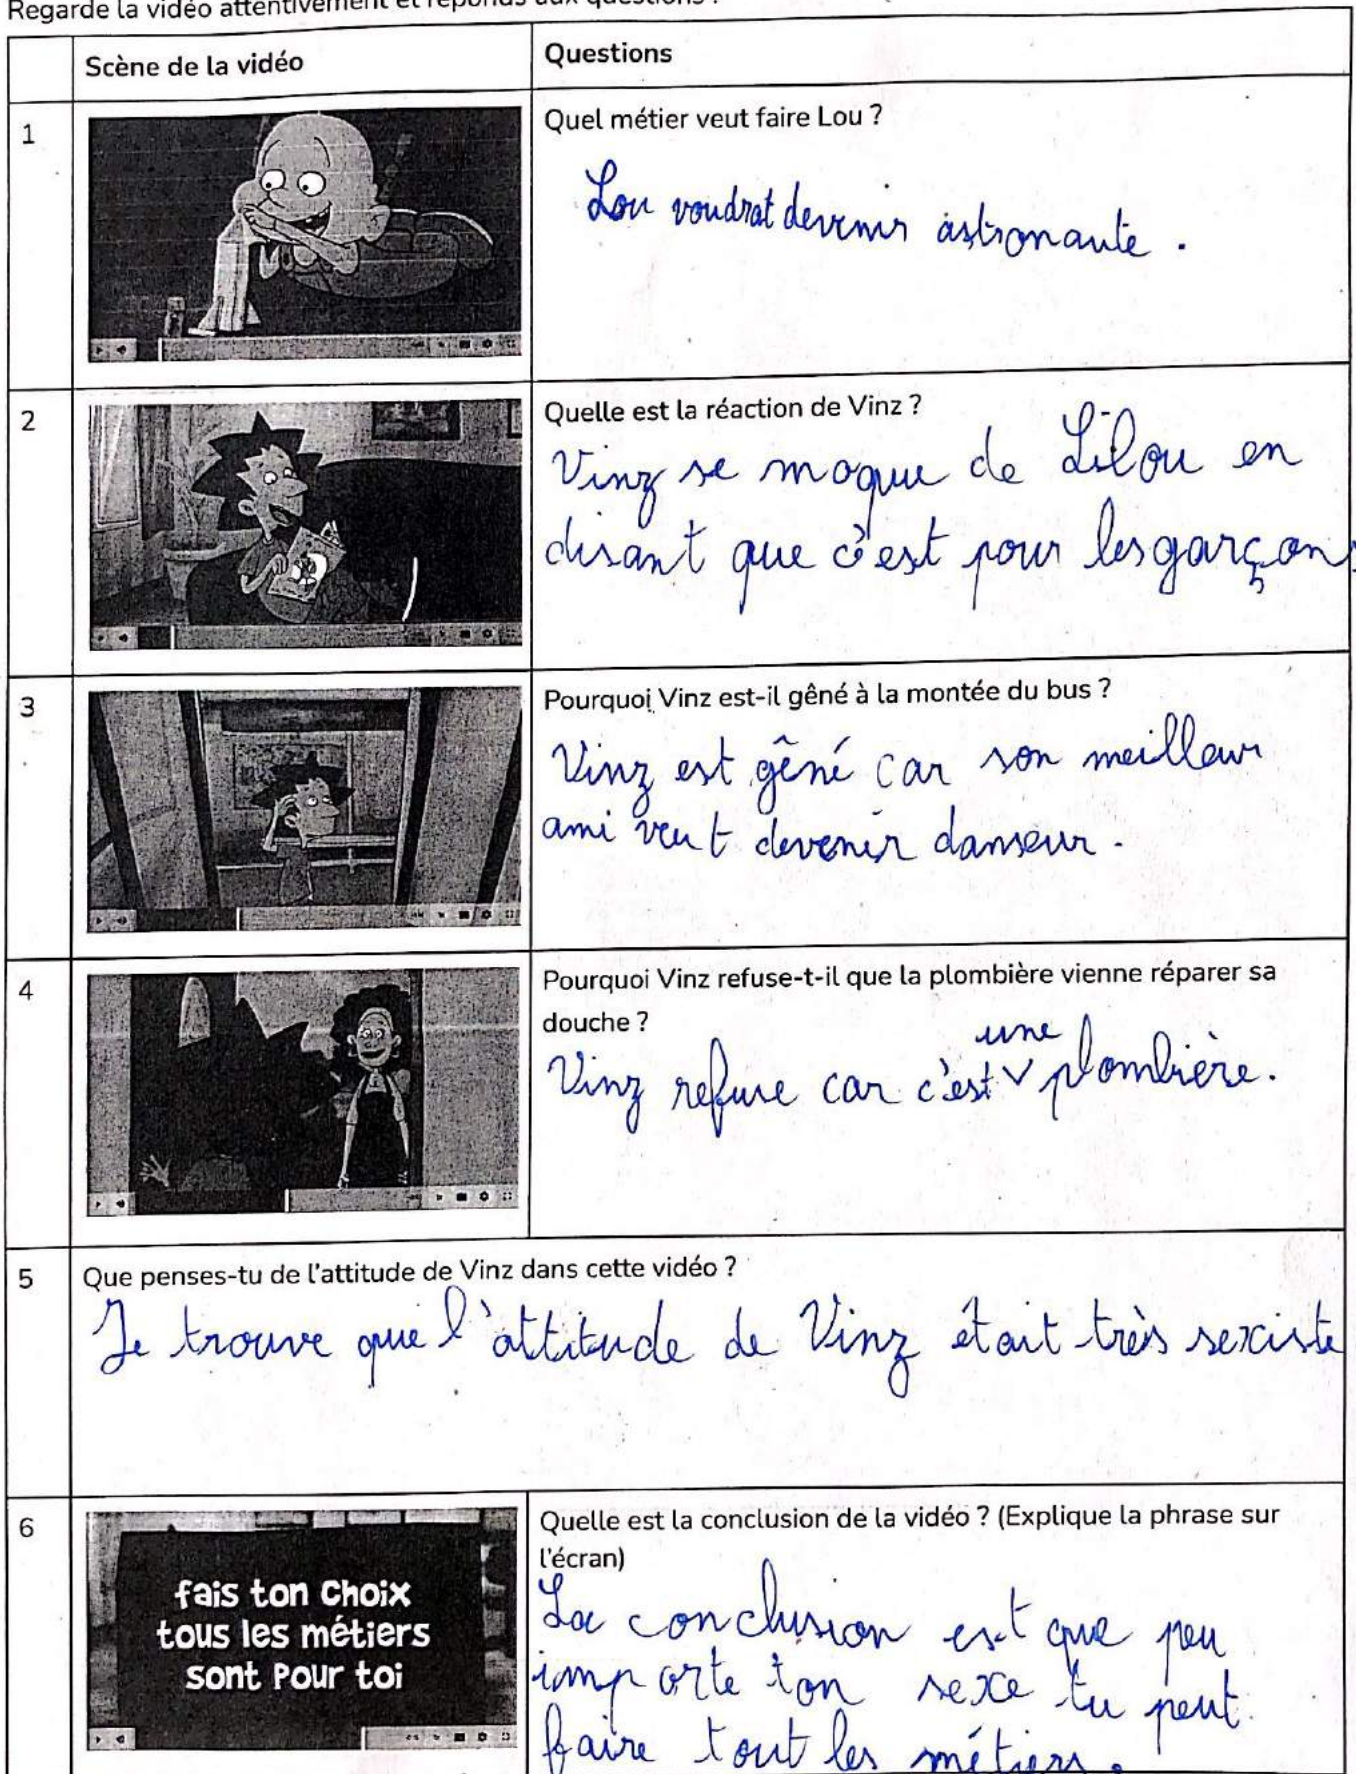 Regarde la vidéo attentivement et réponds aux questions :
Scène de la vidéo
Questions
1
Quel métier veut faire Lou ?
Lou voudrat devenir astronaute.
2
Quelle est la réaction de Vinz ?
Vinz se moque de Lilou en
disant que c'est pour les garçons
3
Pourquoi Vinz est-il gêné à la montée du bus ?
Vinz est gêné car son meilleur
ami veut devenir danseur.
4
Pourquoi Vinz refuse-t-il que la plombière vienne réparer sa
douche ?
une
Vinz refuse car c'est plombière.
5
Que penses-tu de l'attitude de Vinz dans cette vidéo ?
Je trouve que l'attitude de Vinz était très sexiste
6
fais ton choix
tous les métiers
sont pour toi
Quelle est la conclusion de la vidéo ? (Explique la phrase sur
l'écran)
La conclusion est que peu
importe ton sexe tu peut
faire tout les métiers.